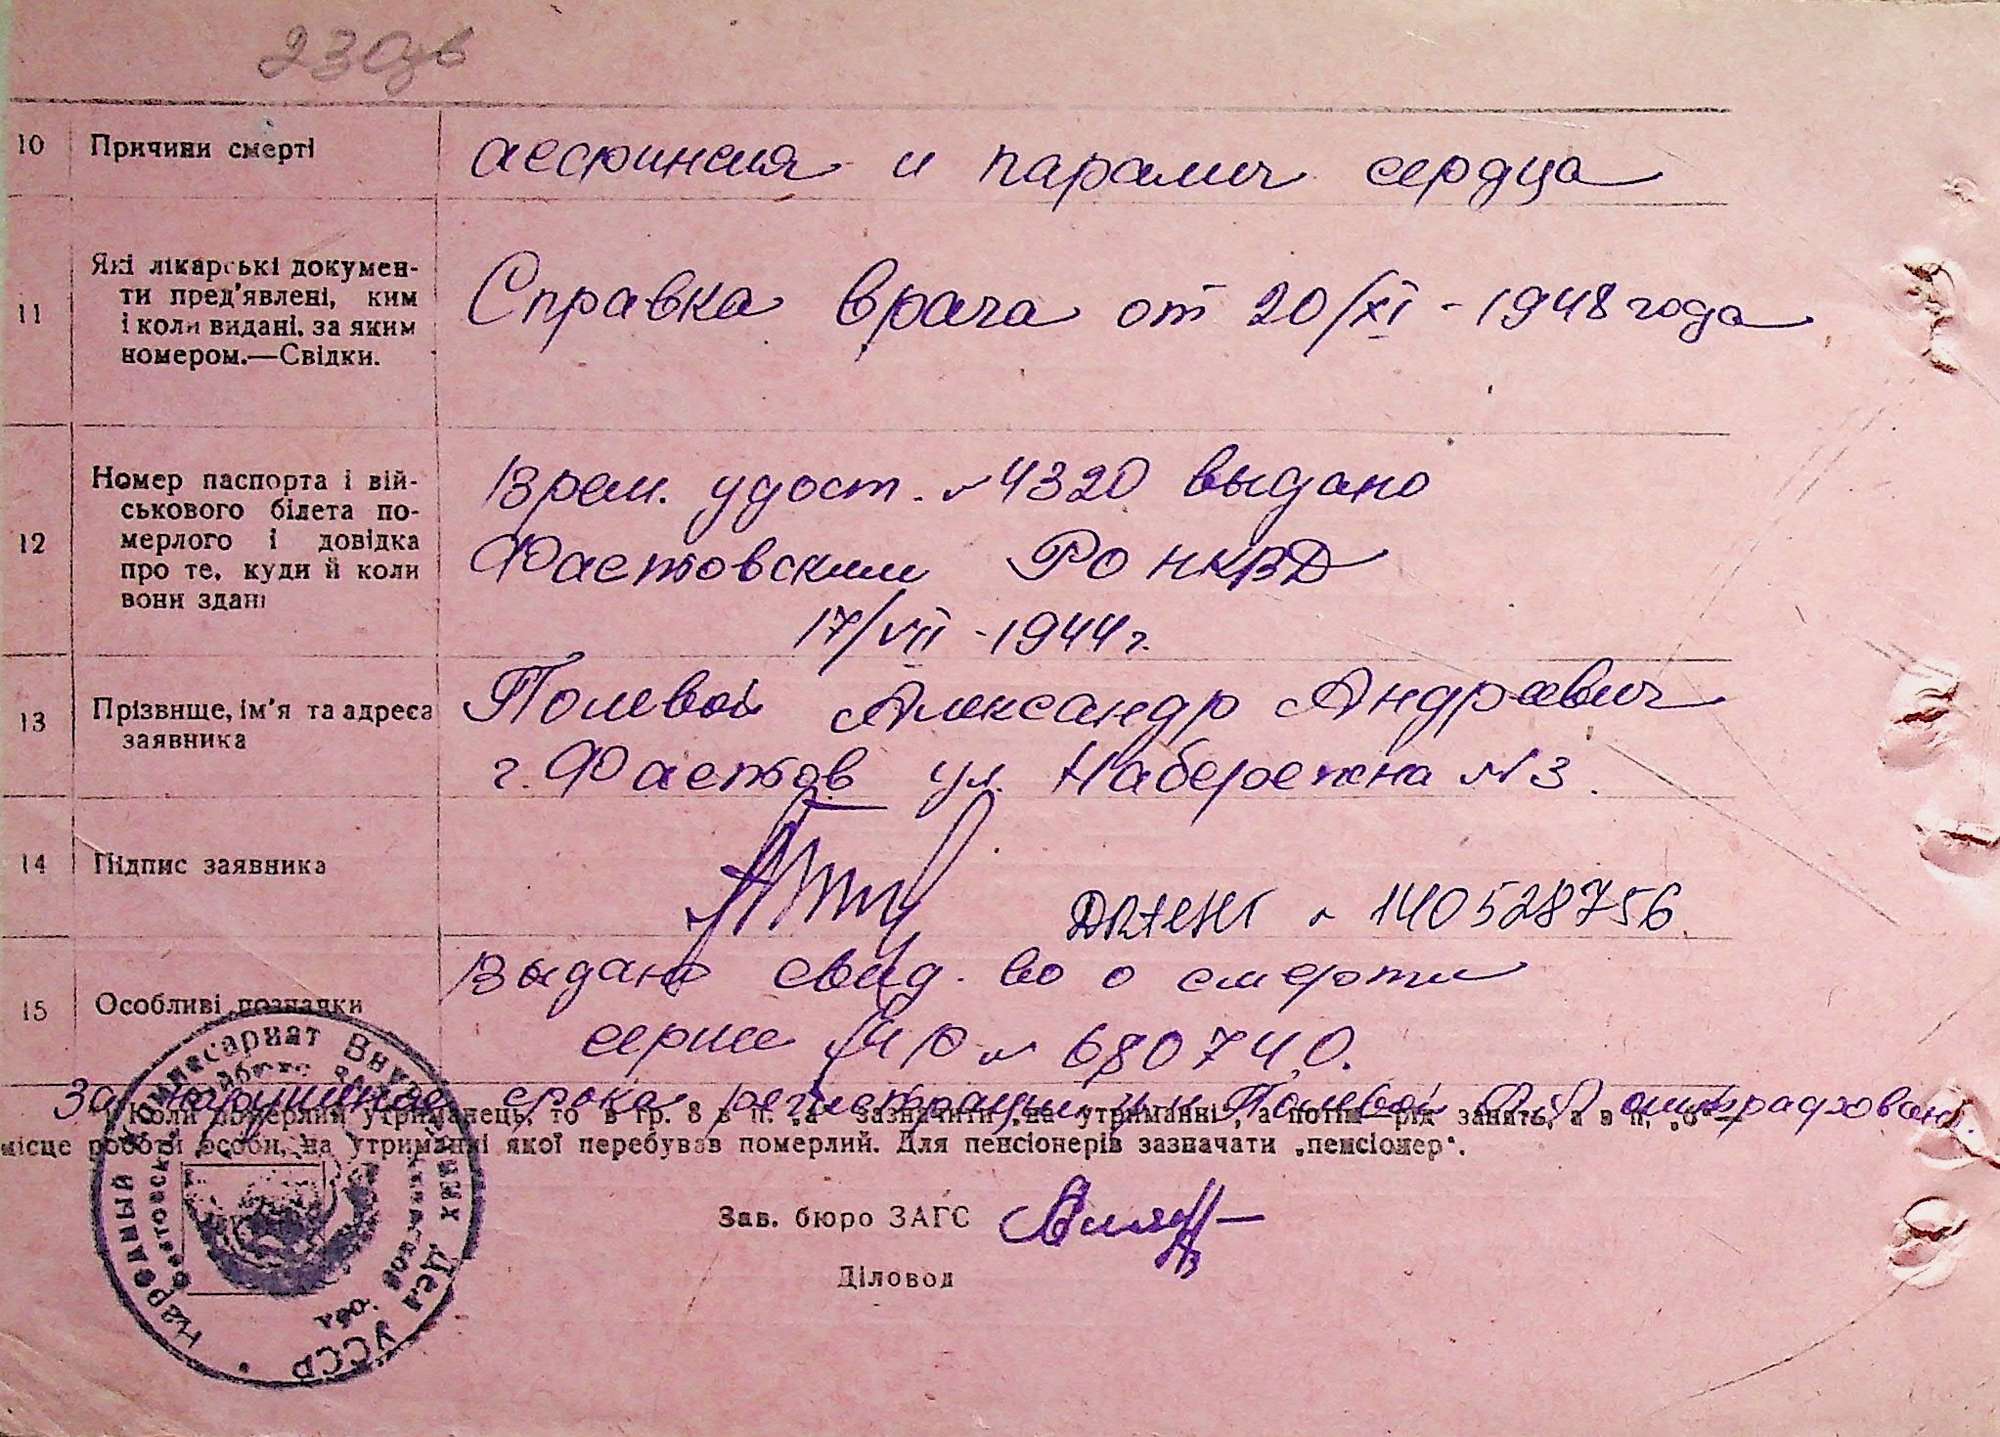 10 Причини смерті
и паралич сердца
11 Які лікарські докумен-
ти пред'явлені, ким
і коли видані, за яким
номером.—Свідки.
Справка врача от 20/XI - 1948 года
12 Номер паспорта і вій-
ськового білета по-
мерлого і довідка
про те, куди й коли
вони здані
Врем. удост. №4320 выдано
Фастовским РО НКВД
17/VII - 1944 г.
13 Прізвище, ім'я та адреса
заявника
Полевой Александр Андревич
г. Фастов ул. Набережна №3.
14 Підпис заявника
№ 140528756.
15 Особливі позначки
Выдано свид. во о смерти
серие № 680740.
За нарушение срока регистрации Полевой оштрафован.
Коли померлий утриманець, то в гр. 8 в п. „а" зазначити „на утриманні", а потім рід занять, а в п. „б"—
місце роботи особи, на утриманні якої перебував померлий. Для пенсіонерів зазначати „пенсіонер".
Зав. бюро ЗАГС
Діловод
Народный Комиссариат Внутренних Дел УССР